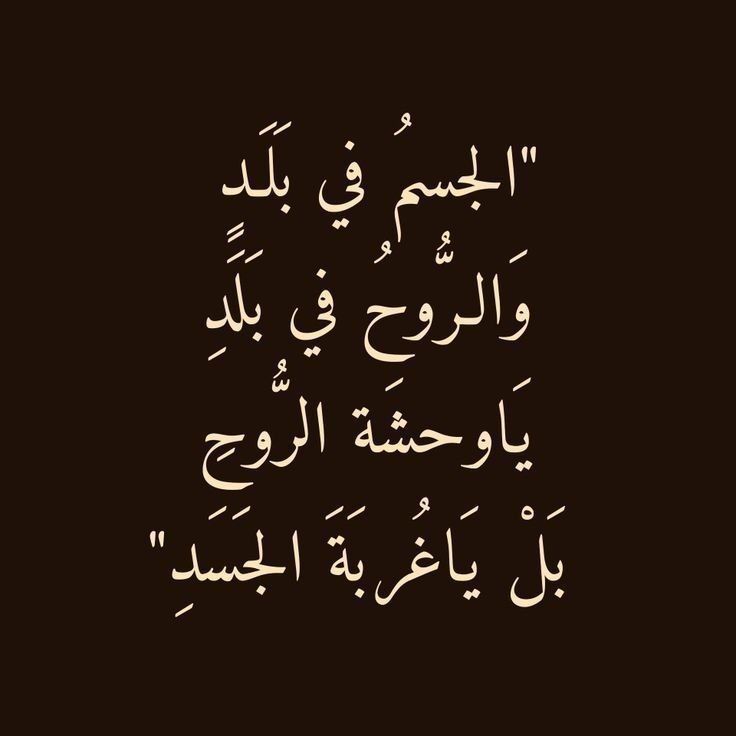 "الجسمُ في بَلَد
وَالرُّوحُ في بَلَدٍ
يَاوحشَة الرُّوحِ
بَلْ يَاغُربَةَ الجَسَدِ"